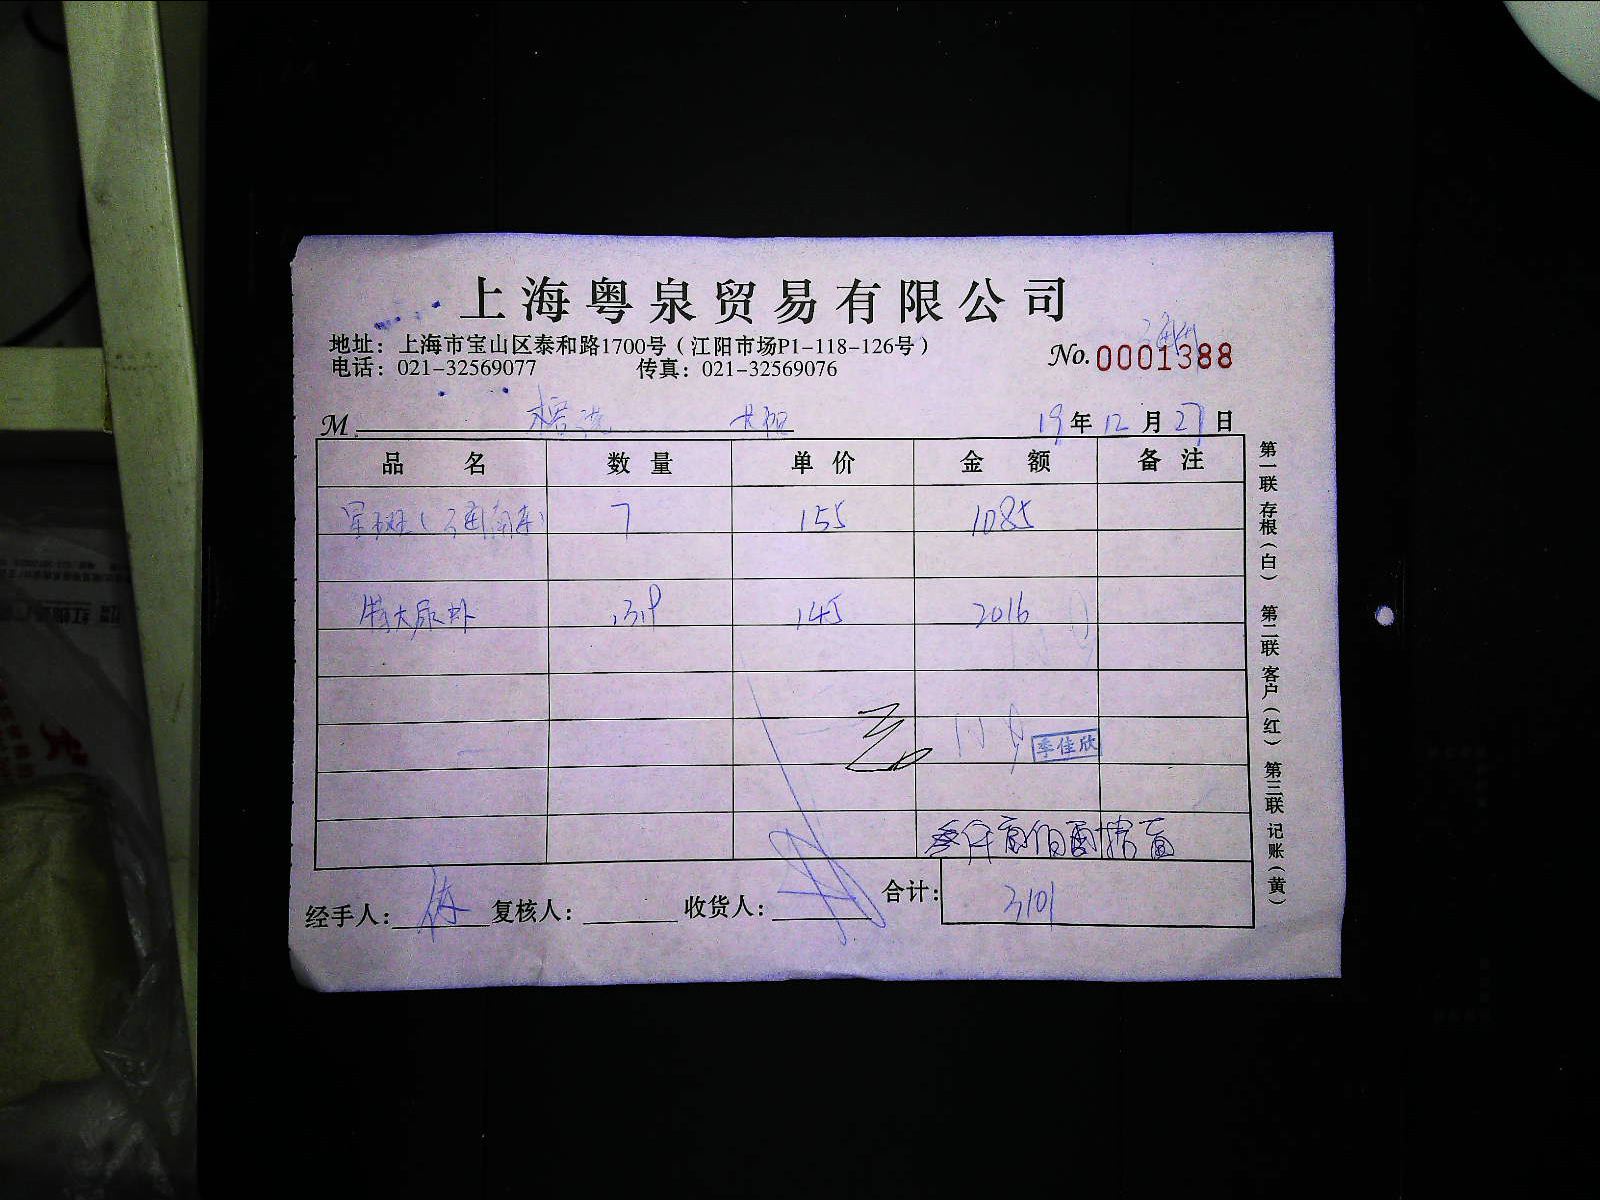 上海粤泉贸易有限公司
地址：上海市宝山区泰和路1700号（江阳市场P1-118-126号）
电话：021-32569077 传真：021-32569076
No.0001388
M. 19年12月27日
品名 数量 单价 金额 备注
7 155 1085
特大尿虾 13.9 145 2016
李佳欣
合计：3101
经手人： 复核人： 收货人：
第一联 存根（白） 第二联 客户（红） 第三联 记账（黄）